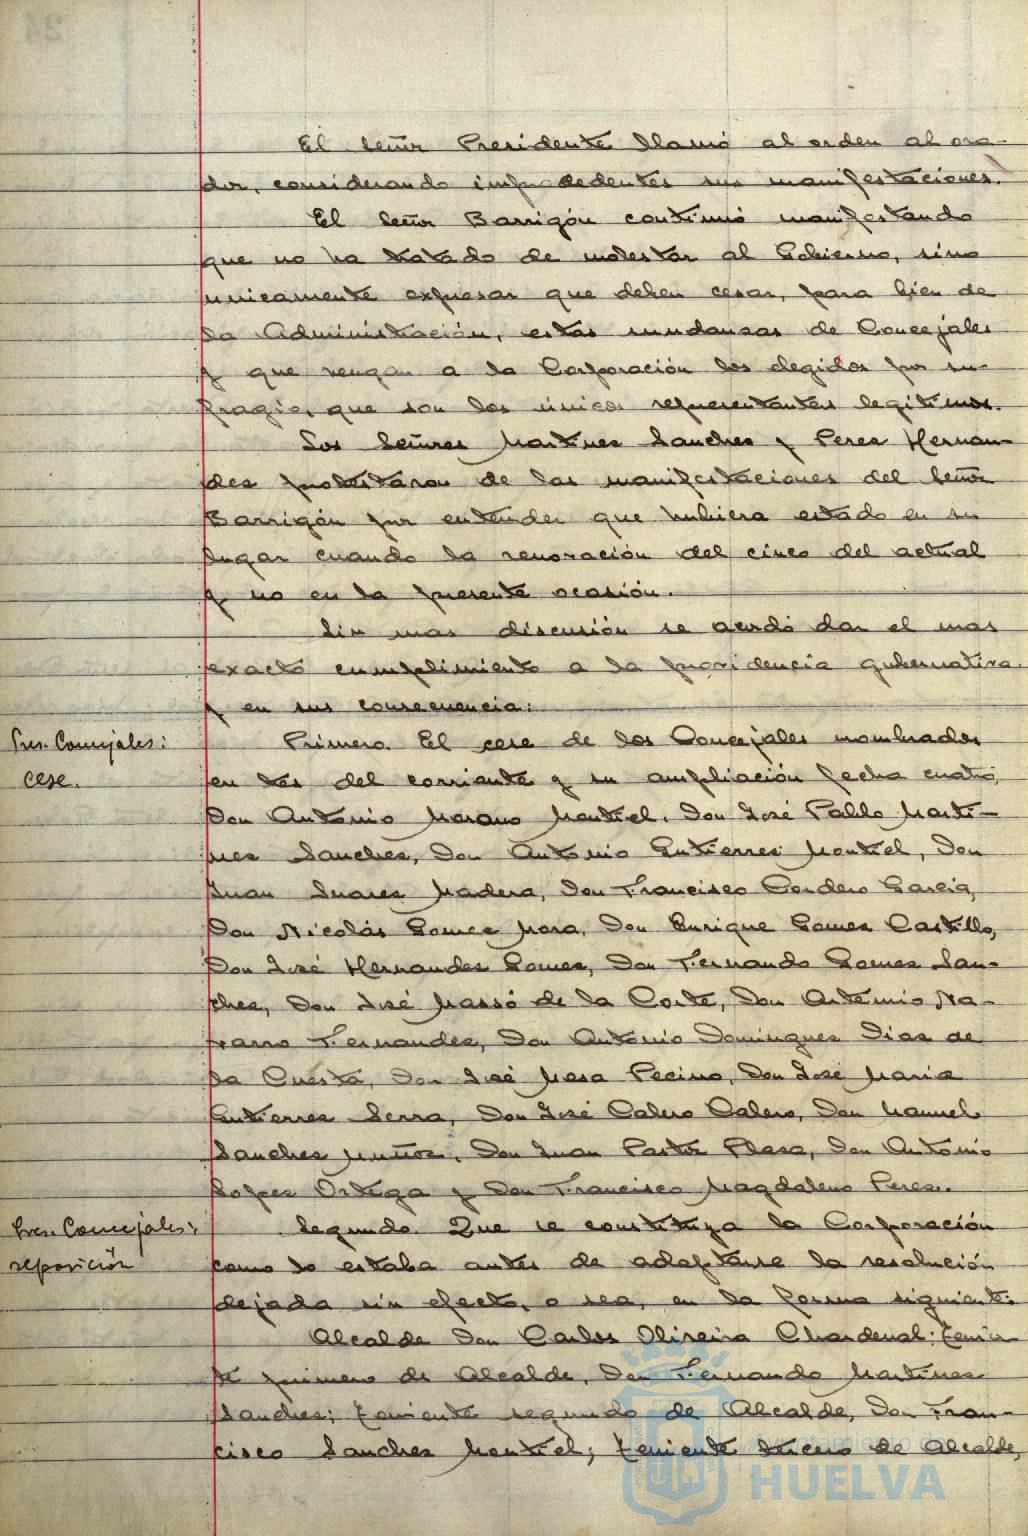 El Señor Presidente llamó al orden al ora-
dor, considerando improcedentes sus manifestaciones.
El Señor Barrigón continuó manifestando
que no ha tratado de molestar al Gobierno, sino
unicamente expresar que deben cesar, para bien de
la Administración, estas mudanzas de Concejales
y que vengan a la Corporación los elegidos por su-
fragio, que son los únicos representantes legitimos.
Los Señores Martinez Sanchez y Perez Hernan-
dez protestaron de las manifestaciones del Señor
Barrigón por entender que hubiera estado en su
lugar cuando la renovación del cinco del actual
y no en la presente ocasión.
Sin mas discusión se acordó dar el mas
exacto cumplimiento a la providencia gubernativa
y en sus consecuencia:
Sres. Concejales:
cese.
Primero. El cese de los Concejales nombrados
en tres del corriente y su ampliación fecha cuatro,
Don Antonio Morano Montiel, Don José Pablo Marti-
nez Sanchez, Don Antonio Gutierrez Montiel, Don
Juan Suarez Madera, Don Francisco Cordero Garcia,
Don Nicolás Gomez Mora, Don Enrique Gomez Castillo,
Don José Hernandez Gomez, Don Fernando Gomez San-
chez, Don José Massó de la Corte, Don Artemio Na-
varro Fernandez, Don Antonio Dominguez Diaz de
la Cuesta, Don José Mesa Pecino, Don José Maria
Gutierrez Serra, Don José Calero Calero, Don Manuel
Sanchez Muñoz, Don Juan Pastor Plaza, Don Antonio
Lopez Ortega y Don Francisco Magdaleno Perez.
Sres. Concejales:
reposición
Segundo. Que se constituya la Corporación
como lo estaba antes de adoptarse la resolución
dejada sin efecto, o sea, en la forma siguiente:
Alcalde Don Carlos Oliveira Chardenal: Tenien-
te primero de Alcalde, Don Fernando Martinez
Sanchez; Teniente segundo de Alcalde, Don Fran-
cisco Sanchez Montiel; Teniente tercero de Alcalde,
Ayuntamiento de
HUELVA